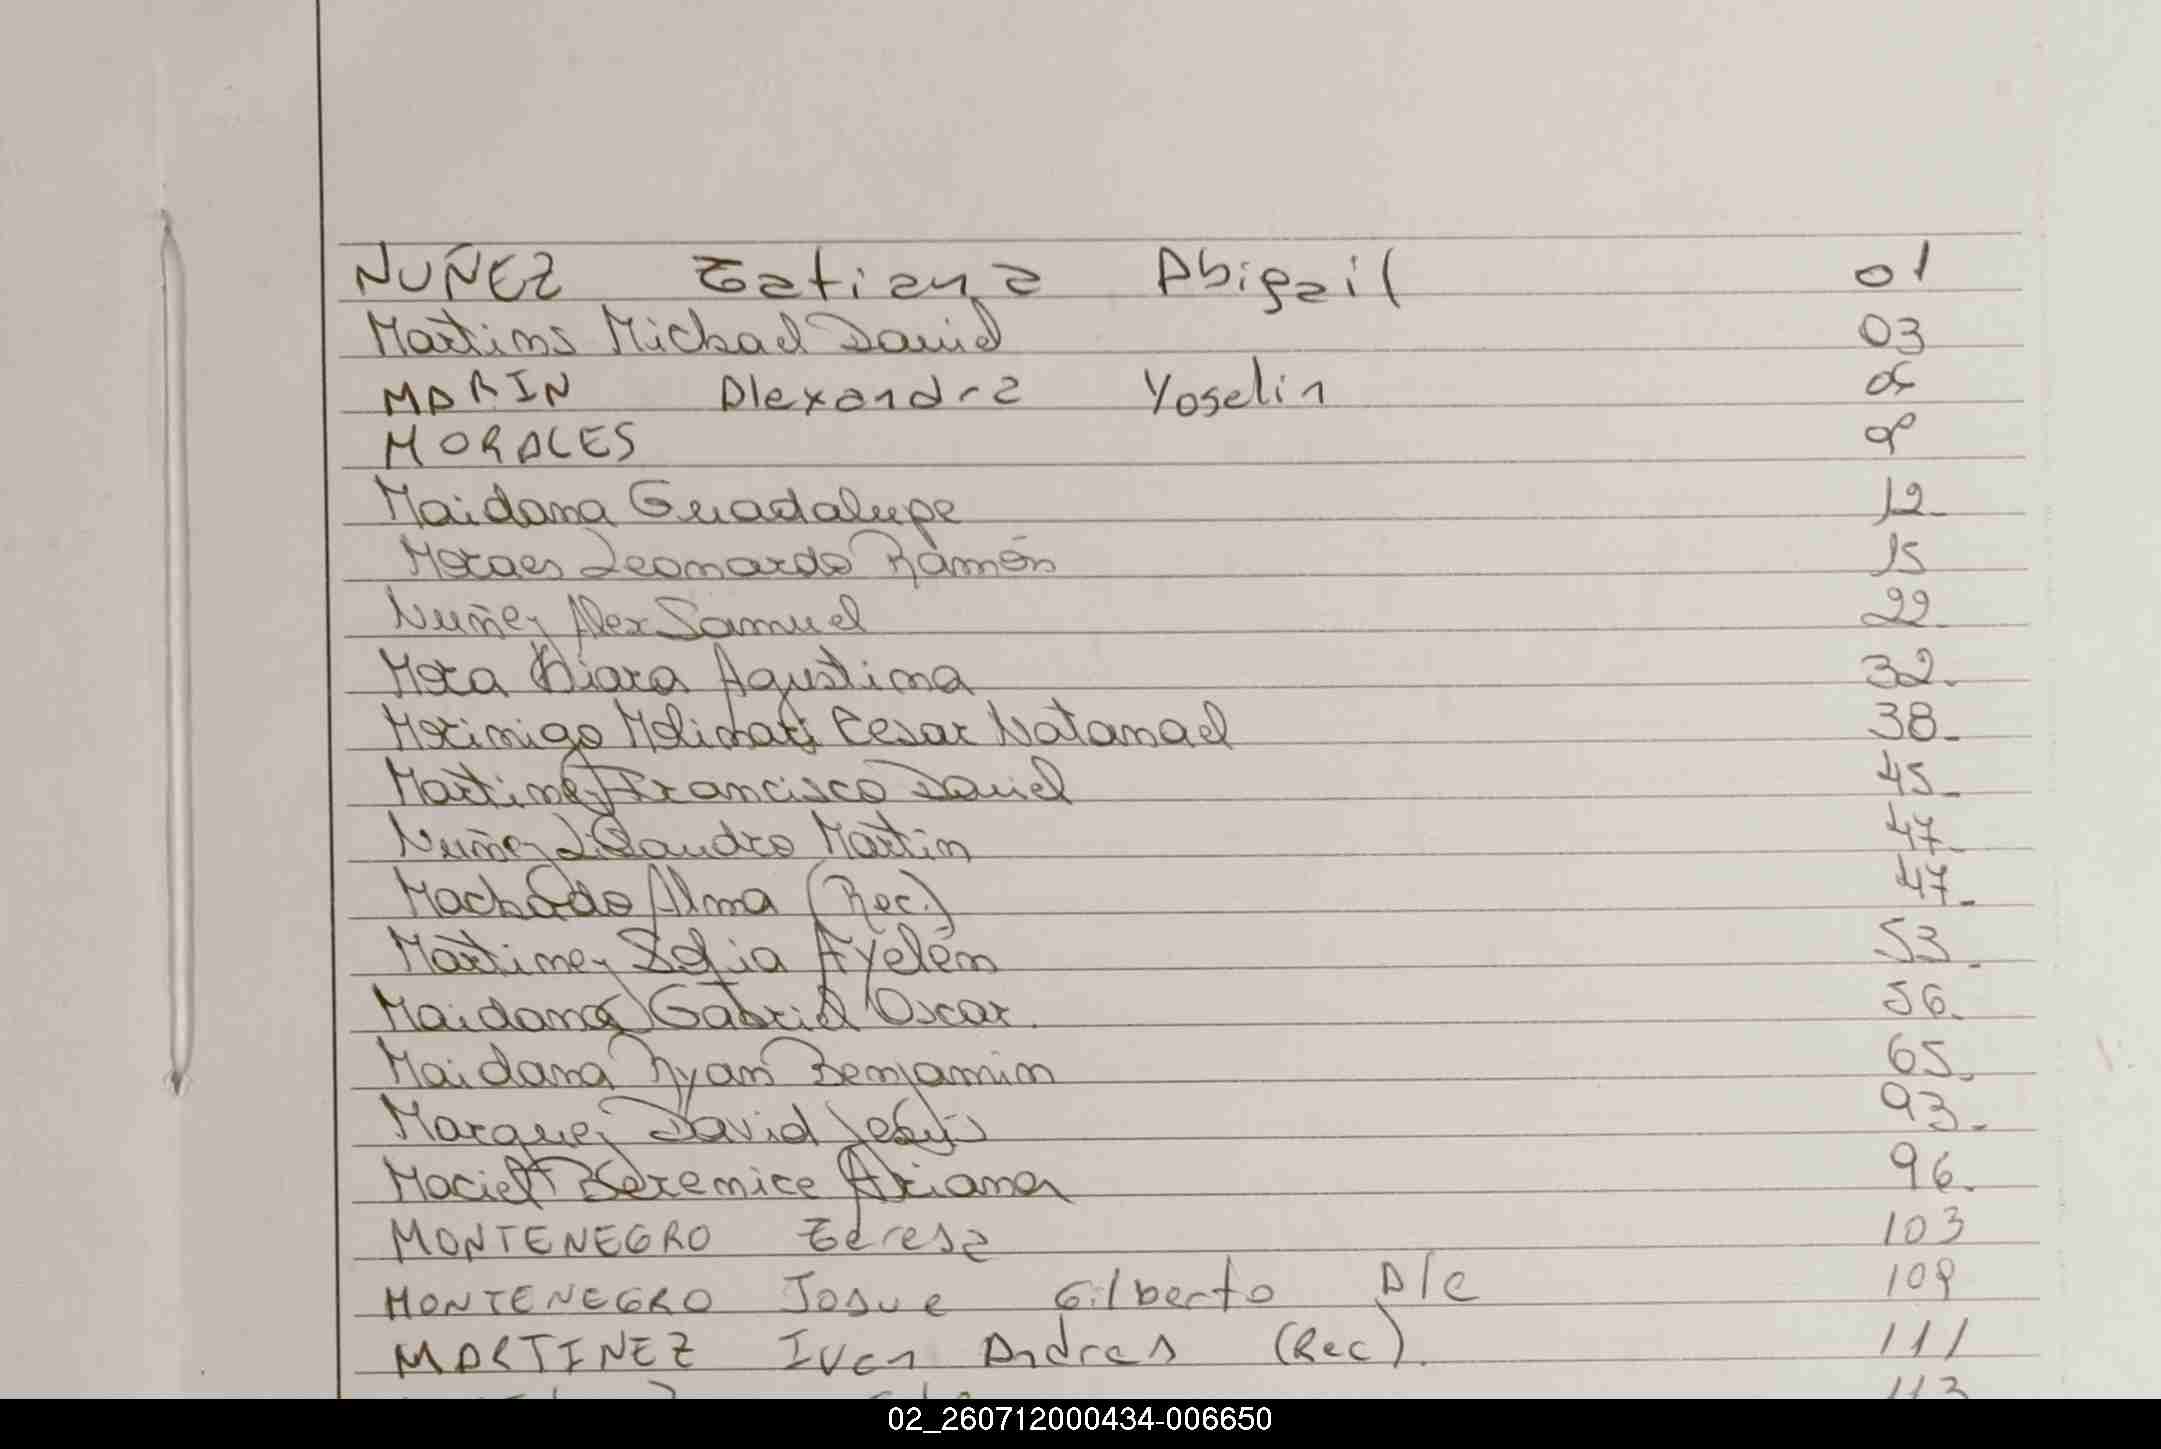 NUÑEZ Tatiana Abigail 01
Martins Michael David 03
MARIN Alexandra Yoselin 05
MORALES 08
Maidana Guadalupe 12
Moraes Leonardo Ramón 15
Nuñez Alex Samuel 22
Mora Kiara Agustina 32.
Morinigo Molinari Cesar Natanael 38.
Martinez Francisco Daniel 45.
Nuñez Lisandro Martin 47.
Machado Alma (Rec.) 47.
Martinez Sofia Ayelén 53.
Maidana Gabriel Oscar. 56.
Maidana Ryan Benjamin 65.
Marquez David Jesús 93.
Maciel Berenice Ariana 96.
MONTENEGRO Teresa 103
MONTENEGRO Josue Gilberto A/C 109
MARTINEZ Ivan Andres (Rec). 111
113
02_260712000434-006650